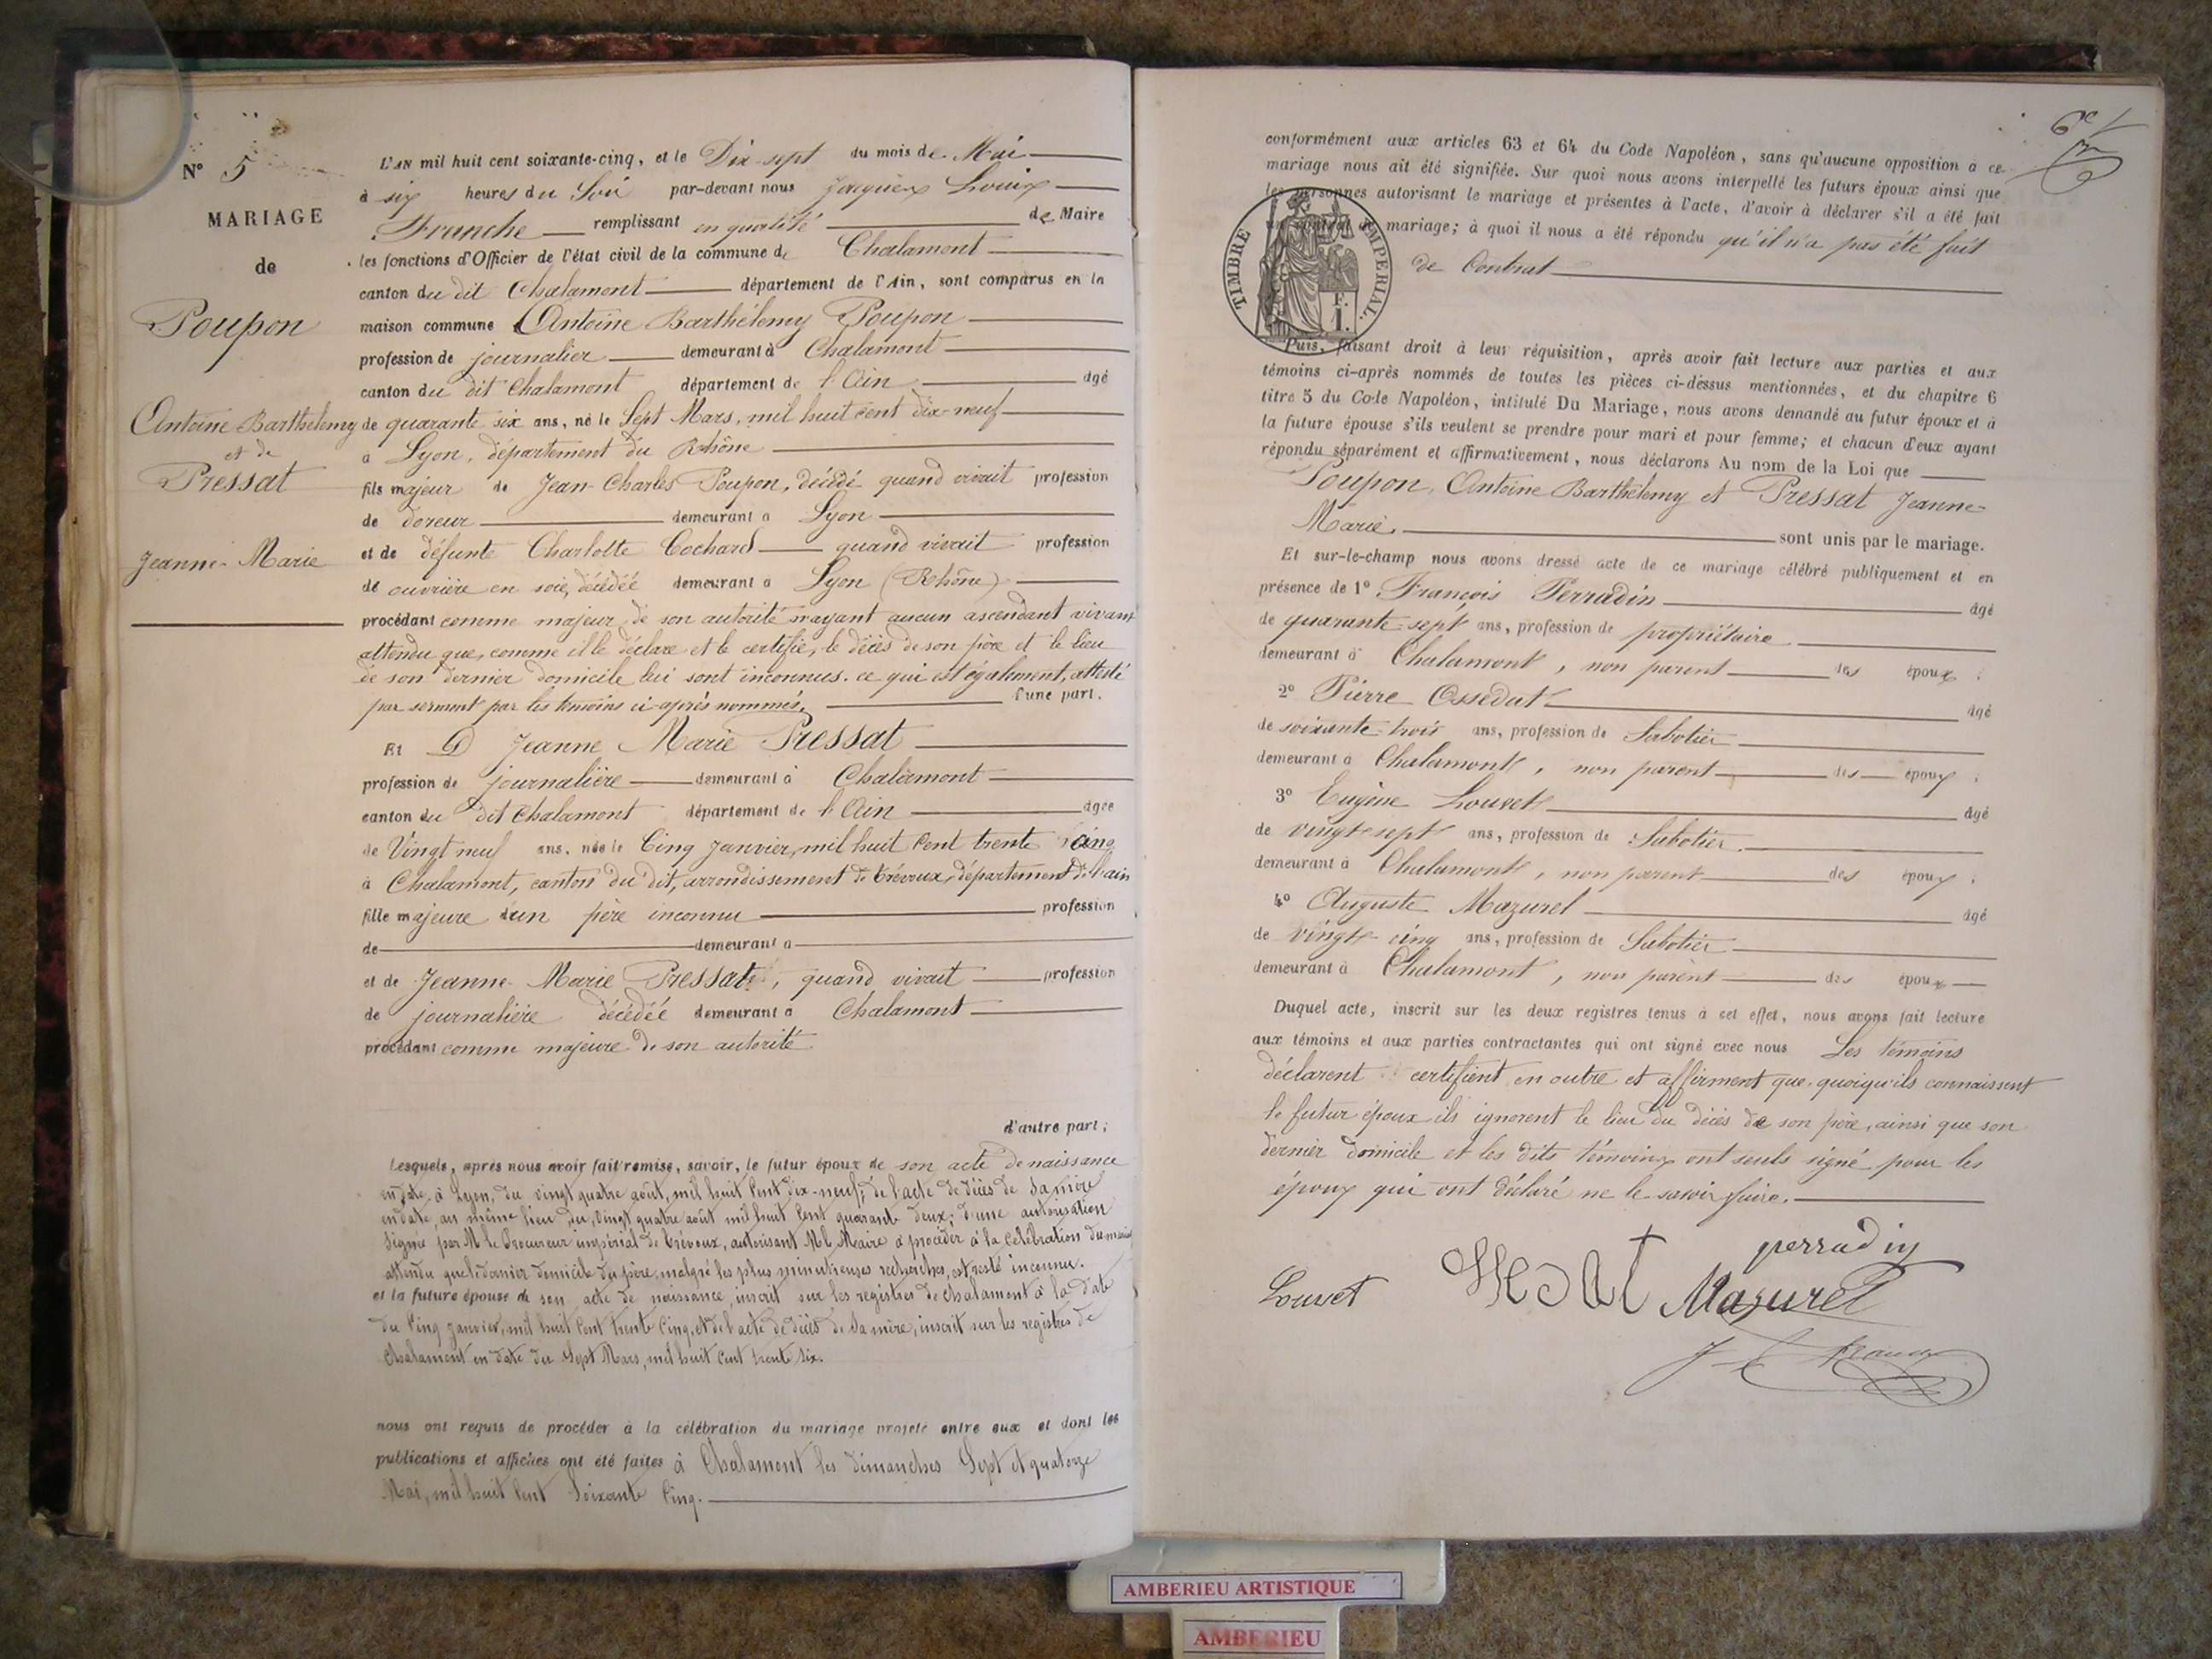 N° 5
MARIAGE
de
Poupon
Antoine Barthélemy
et de
Pressat
Jeanne-Marie
L'AN mil huit cent soixante-cinq, et le Dix-sept du mois de Mai
à six heures du Soir par-devant nous Jacques Louis
Franche remplissant en qualité de Maire
les fonctions d'Officier de l'état civil de la commune de Chalamont
canton du dit Chalamont département de l'Ain, sont comparus en la
maison commune Antoine Barthélemy Poupon
profession de journalier demeurant à Chalamont
canton du dit Chalamont département de l'Ain âgé
de quarante six ans, né le Sept Mars, mil huit cent dix-neuf
à Lyon, département du Rhône
fils majeur de Jean-Charles Poupon, décédé quand vivait profession
de doreur demeurant à Lyon
et de défunte Charlotte Cochard quand vivait profession
de ouvrière en soie, décédée demeurant à Lyon (Rhône)
procédant comme majeur, de son autorité n'ayant aucun ascendant vivant
attendu que, comme il le déclare et le certifie, le décès de son père et le lieu
de son dernier domicile lui sont inconnus. ce qui est également, attesté
par serment par les témoins ci-après nommés. d'une part.
Et D Jeanne Marie Pressat
profession de journalière demeurant à Chalamont
canton du dit Chalamont département de l'Ain âgée
de Vingt neuf ans, née le Cinq Janvier, mil huit Cent trente cinq
à Chalamont, canton du dit, arrondissement de Trévoux, département de l'ain
fille majeure d'un père inconnu profession
de demeurant à
et de Jeanne-Marie Pressat, quand vivait profession
de journalière décédée demeurant à Chalamont
procédant comme majeure de son autorité
d'autre part;
Lesquels, après nous avoir fait remise, savoir, le futur époux de son acte de naissance
en date à Lyon, du vingt quatre août, mil huit Cent dix-neuf; de l'acte de décès de Sa mère
en date, au même lieu du, Vingt quatre août mil huit Cent quarante deux; d'une autorisation
signée par M le Procureur impérial de Trévoux, autorisant M le Maire à procéder à la Célébration du
attendu que le dernier domicile du père, malgré les plus minutieuses recherches, est resté inconnu.
et la future épouse de son acte de naissance, inscrit sur les registres de Chalamont à la date
du Cinq Janvier, mil huit Cent trente Cinq, et de l'acte de décès de Sa mère, inscrit sur les registres de
Chalamont en date du Sept Mars, mil huit Cent trente Six.
nous ont requis de procéder à la célébration du mariage projeté entre eux et dont les
publications et affiches ont été faites à Chalamont les dimanches Sept et quatorze
Mai, mil huit Cent Soixante Cinq.
conformément aux articles 63 et 64 du Code Napoléon, sans qu'aucune opposition à ce
mariage nous ait été signifiée. Sur quoi nous avons interpellé les futurs époux ainsi que
les personnes autorisant le mariage et présentes à l'acte, d'avoir à déclarer s'il a été fait
mariage; à quoi il nous a été répondu qu'il n'a pas été fait
de Contrat
TIMBRE IMPERIAL.
Puis, faisant droit à leur réquisition, après avoir fait lecture aux parties et aux
témoins ci-après nommés de toutes les pièces ci-dessus mentionnées, et du chapitre 6
titre 5 du Code Napoléon, intitulé Du Mariage, nous avons demandé au futur époux et à
la future épouse s'ils veulent se prendre pour mari et pour femme; et chacun d'eux ayant
répondu séparément et affirmativement, nous déclarons Au nom de la Loi que
Poupon, Antoine Barthélemy et Pressat Jeanne-
Marie. sont unis par le mariage.
Et sur-le-champ nous avons dressé acte de ce mariage célébré publiquement et en
présence de 1° François Perradin âgé
de quarante-sept ans, profession de propriétaire
demeurant à Chalamont, non parent des époux
2° Pierre Ossedat âgé
de soixante-trois ans, profession de Sabotier
demeurant à Chalamont, non parent des époux
3° Eugène Louvet âgé
de vingt-sept ans, profession de Sabotier.
demeurant à Chalamont, non parent des époux
4° Auguste Mazuret âgé
de vingt-cinq ans, profession de Sabotier
demeurant à Chalamont, non parent des époux
Duquel acte, inscrit sur les deux registres tenus à cet effet, nous avons fait lecture
aux témoins et aux parties contractantes qui ont signé avec nous Les témoins
déclarent certifient en outre et affirment que quoiqu'ils connaissent
le futur époux ils ignorent le lieu du décès de son père, ainsi que son
dernier domicile et les dits témoins ont seuls signé pour les
époux qui ont déclaré ne le savoir faire.
perradin
Louvet Mazuret
AMBERIEU ARTISTIQUE
AMBERIEU